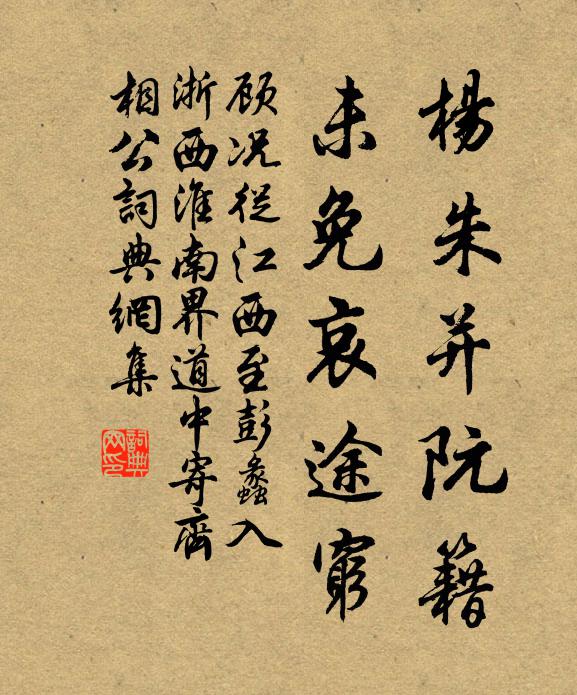 楊朱并阮籍
未免哀途窮
顾况從江西至彭蠡入
浙西淮南界道中寄齊
相公詞典網集
詞典
网印